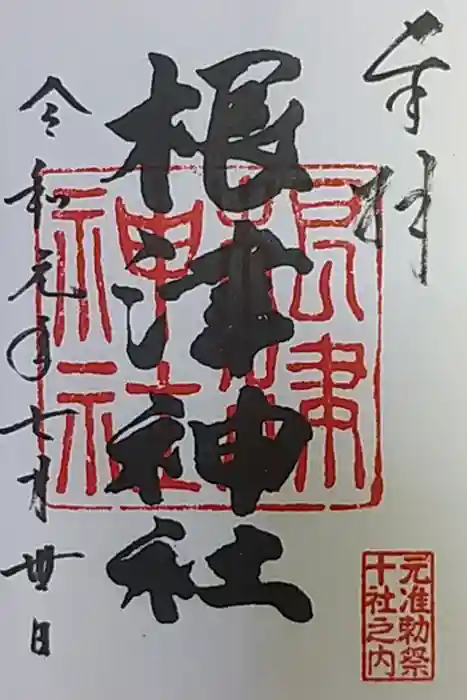 奉拝
根津神社
根津
神社
元准勅祭
十社之内
令和元年七月丗日